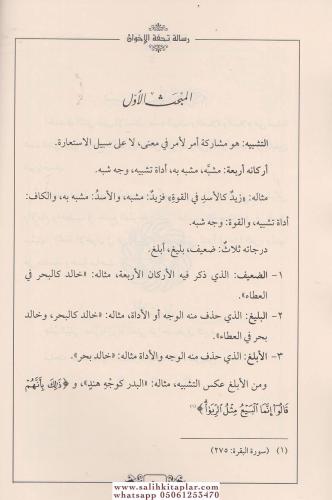 رسالة تحفة الإخوان
المبحث الأول
التشبيه: هو مشاركة أمر لأمر في معنى، لا على سبيل الاستعارة.
أركانه أربعة: مشبَّه، مشبه به، أداة تشبيه، وجه شبه.
مثاله: «زيدٌ كالأسدِ في القوةِ» فزيدٌ: مشبه، والأسدُ: مشبه به، والكاف:
أداة تشبيه، والقوة: وجه شبه.
درجاته ثلاثٌ: ضعيف، بليغ، أبلغ.
١- الضعيف: الذي ذكر فيه الأركان الأربعة، مثاله: «خالد كالبحر في
العطاء».
٢- البليغ: الذي حذف منه الوجه أو الأداة، مثاله: «خالد كالبحر، وخالد
بحر في العطاء».
٣- الأبلغ: الذي حذف منه الوجه والأداة مثاله: «خالد بحر».
ومن الأبلغ عكس التشبيه، مثاله: «البدر كوجْهِ هندٍ»، و ﴿ذَٰلِكَ بِأَنَّهُمْ
قَالُوٓا۟ إِنَّمَا ٱلْبَيْعُ مِثْلُ ٱلرِّبَوٰا۟﴾(١)
(١) (سورة البقرة: ٢٧٥)
web sitemiz : www.salihkitaplar.com
whatsapp 05061253470